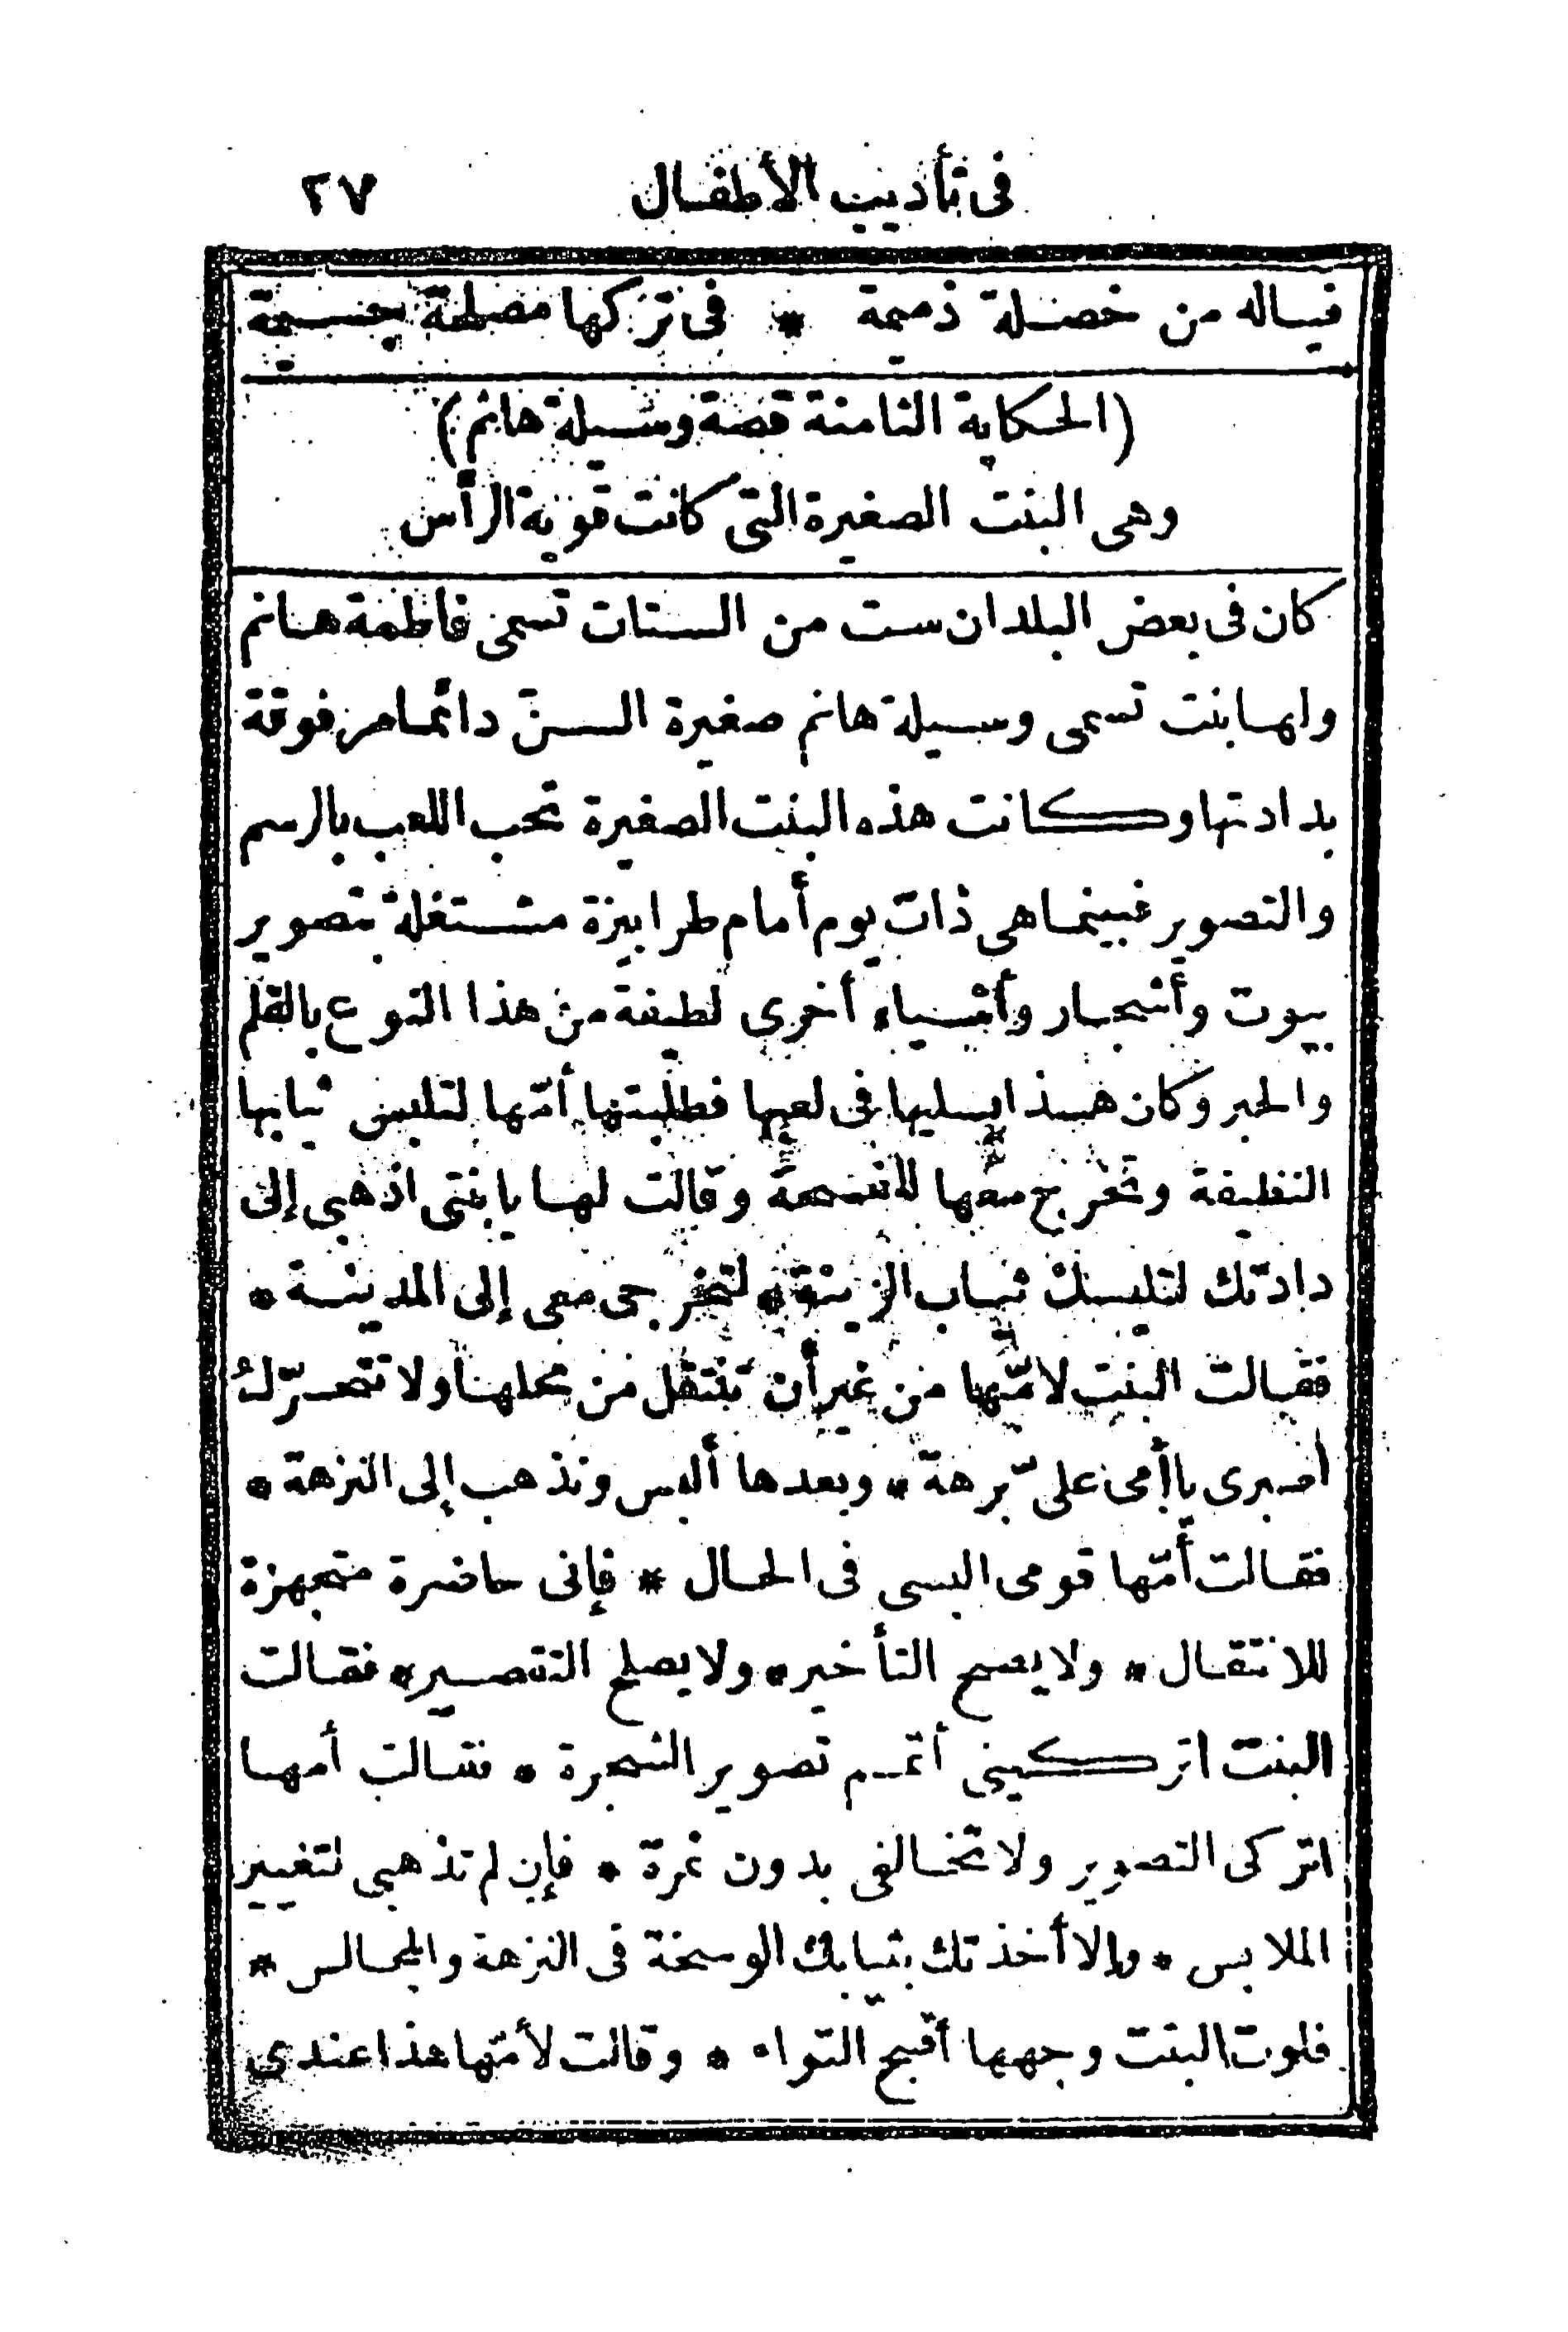 فى تأديب الأطفال ٢٧
فياله من خصلة ذميمة * فى تركها مصلحة جسيمة
(الحكاية الثامنة قصة وسيلة هانم)
وهى البنت الصغيرة التى كانت قوية الرأس
كان فى بعض البلدان ست من الستات تسمى فاطمة هانم
ولها بنت تسمى وسيلة هانم صغيرة السنّ دائما مرفوقة
بدادتها وكانت هذه البنت الصغيرة تحب اللعب بالرسم
والتصوير فبينما هى ذات يوم أمام طرابيزة مشتغلة بتصوير
بيوت وأشجار وأشياء أخرى لطيفة من هذا النوع بالقلم
والحبر وكان هذا يسليها فى لعبها فطلبتها أمّها لتلبس ثيابها
النظيفة وتخرج معها للفسحة وقالت لها يا بنتى اذهبى إلى
دادتك لتلبسك ثياب الزينة * لتخرجى معى إلى المدينة *
فقالت البنت لامّها من غير أن تنتقل من محلها ولا تتحرّك
اصبرى يا أمى علىّ برهة * وبعدها ألبس ونذهب إلى النزهة *
فقالت أمّها قومى البسى فى الحال * فإنى حاضرة متجهزة
للانتقال * ولا يصح التأخير * ولا يصلح التقصير * فقالت
البنت اتركينى أتمم تصوير الشجرة * فقالت أمها
اتركى التصوير ولا تخالفى بدون ثمرة * فإن لم تذهبى لتغيير
الملابس * وإلا أخذتك بثيابك الوسخة فى النزهة والمجالس *
فلوت البنت وجهها أقبح التواء * وقالت لأمّها هذا عندى